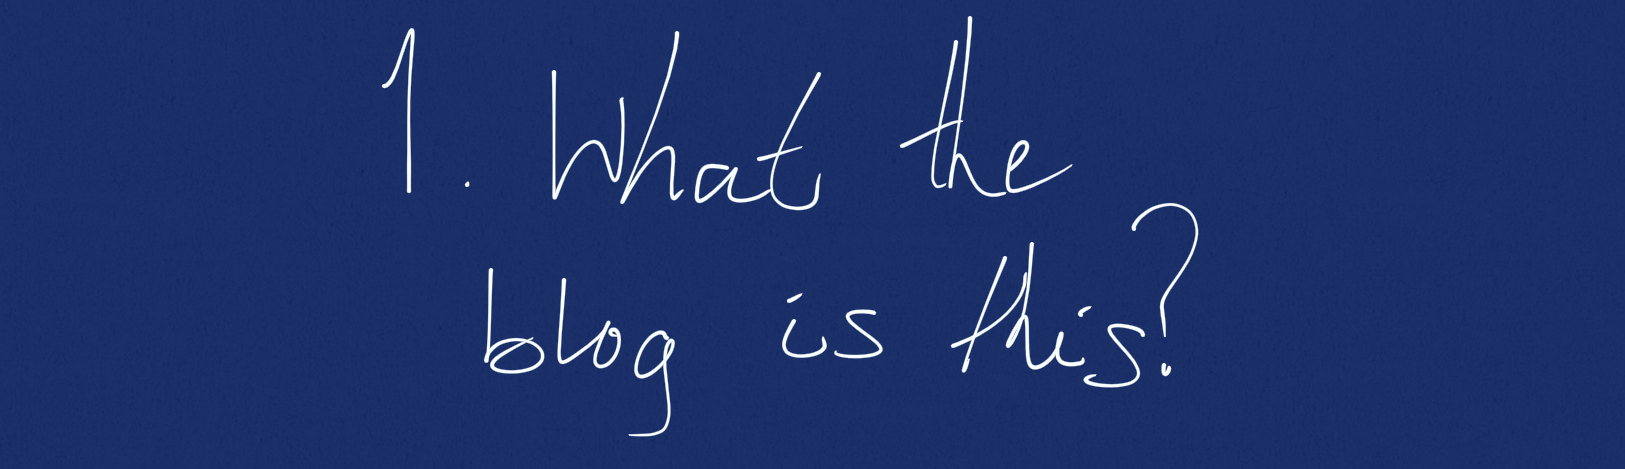 1. What the
blog is this?